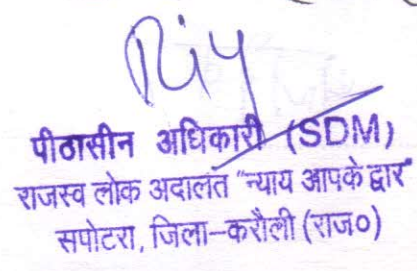 पीठासीन अधिकारी (SDM)
राजस्व लोक अदालत "न्याय आपके द्वार"
सपोटरा, जिला-करौली (राज०)